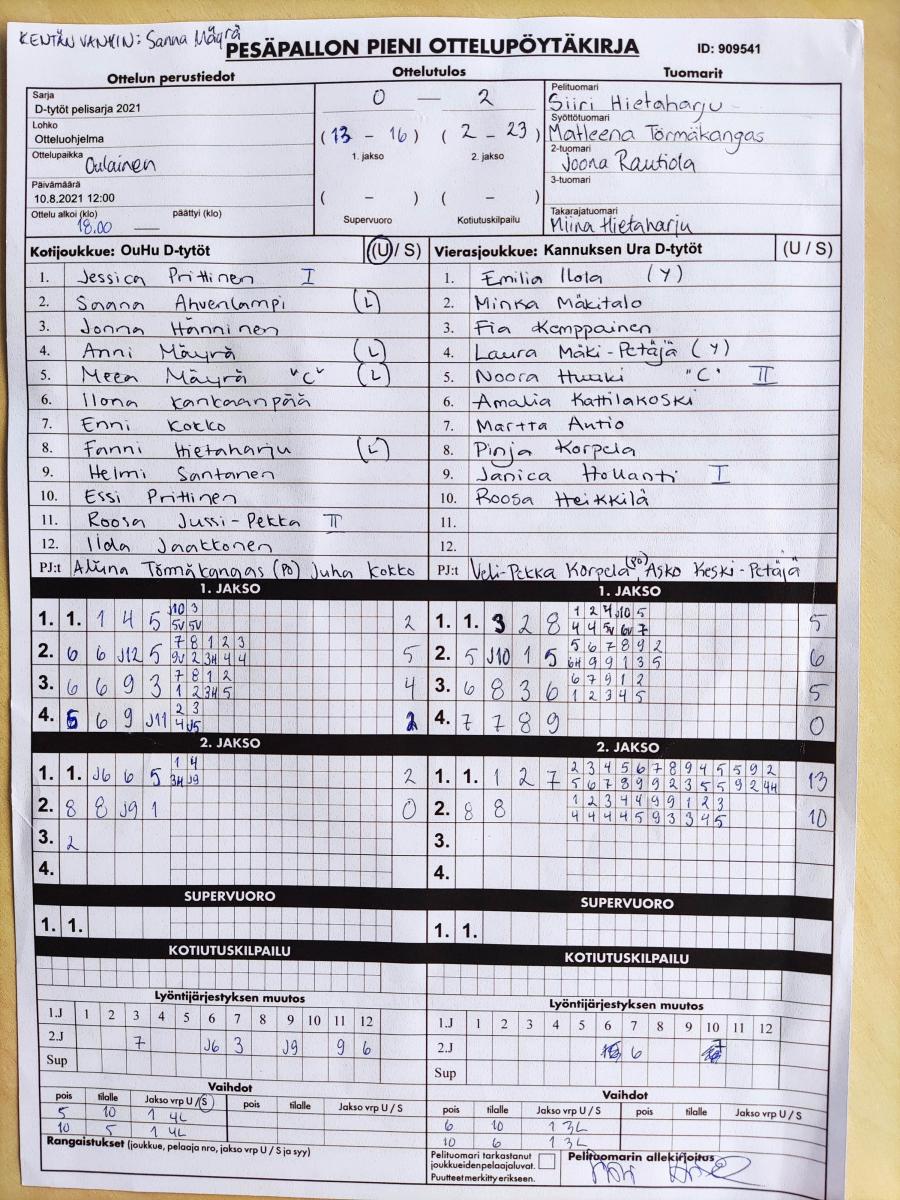 KENTÄN VANHIN: Sanna Mäyrä
PESÄPALLON PIENI OTTELUPÖYTÄKIRJA
ID: 909541
Ottelun perustiedot
Ottelutulos
Tuomarit
Sarja
D-tytöt pelisarja 2021
Lohko
Otteluohjelma
Ottelupaikka
Oulainen
Päivämäärä
10.8.2021 12:00
Ottelu alkoi (klo) päättyi (klo)
18.00 —
0 — 2
(13 - 16) (2 - 23)
1. jakso 2. jakso
( - ) ( - )
Supervuoro Kotiutuskilpailu
Pelituomari
Siiri Hietaharju
Syöttötuomari
Matleena Törmäkangas
2-tuomari
Joona Rautiola
3-tuomari
Takarajatuomari
Miina Hietaharju
Kotijoukkue: OuHu D-tytöt (U / S)
1. Jessica Prittinen I
2. Saana Ahvenlampi (L)
3. Jonna Hänninen
4. Anni Mäyrä (L)
5. Meea Mäyrä "C" (L)
6. Ilona Kankaanpää
7. Enni Kokko
8. Fanni Hietaharju (L)
9. Helmi Santanen
10. Essi Prittinen
11. Roosa Jussi-Pekka II
12. Iida Jaakkonen
PJ:t Törmäkangas (PO) Juha Kokko
Vierasjoukkue: Kannuksen Ura D-tytöt (U / S)
1. Emilia Ilola (Y)
2. Minka Mäkitalo
3. Fia Kemppainen
4. Laura Mäki-Petäjä (Y)
5. Noora Huuki "C" II
6. Amalia Kattilakoski
7. Martta Antio
8. Pinja Korpela
9. Janica Hollanti I
10. Roosa Heikkilä
11.
12.
PJ:t Veli-Pekka Korpela (PO), Asko Keski-Petäjä
1. JAKSO
1. 1. 1 4 5 J10 3 2
5V 5V
2. 6 6 J12 5 7 8 1 2 3 5
9V 2 3H 4 4
3. 6 6 9 3 7 8 1 2 4
1 2 3H 5
4. 5 6 9 J11 2 3 2
4 J5
1. JAKSO
1. 1. 3 2 8 1 2 4 J10 5 5
4 4 5V 6V 7
2. 5 J10 1 5 5 6 7 8 9 2 6
6H 9 9 1 3 5
3. 6 8 3 6 6 7 9 1 2 5
1 2 3 4 5
4. 7 7 8 9 0
2. JAKSO
1. 1. J6 6 5 1 4 2
3H J9
2. 8 8 J9 1 0
3. 2
4.
2. JAKSO
1. 1. 1 2 7 2 3 4 5 6 7 8 9 4 5 5 9 2 13
5 6 7 8 9 9 2 3 5 5 9 2 4H
2. 8 8 1 2 3 4 4 9 9 1 2 3 10
4 4 4 4 5 9 3 3 4 5
3.
4.
SUPERVUORO
1. 1.
SUPERVUORO
1. 1.
KOTIUTUSKILPAILU
KOTIUTUSKILPAILU
Lyöntijärjestyksen muutos
1.J 1 2 3 4 5 6 7 8 9 10 11 12
2.J 7 J6 3 J9 9 6
Sup
Lyöntijärjestyksen muutos
1.J 1 2 3 4 5 6 7 8 9 10 11 12
2.J 6 7
Sup
Vaihdot
pois tilalle Jakso vrp U / S pois tilalle Jakso vrp U / S
5 10 1 4L
10 5 1 4L
Rangaistukset (joukkue, pelaaja nro, jakso vrp U / S ja syy)
Vaihdot
pois tilalle Jakso vrp U / S pois tilalle Jakso vrp U / S
6 10 1 3L
10 6 1 3L
Pelituomari tarkastanut
joukkueidenpelaajaluvat.
Puutteet merkitty erikseen.
Pelituomarin allekirjoitus